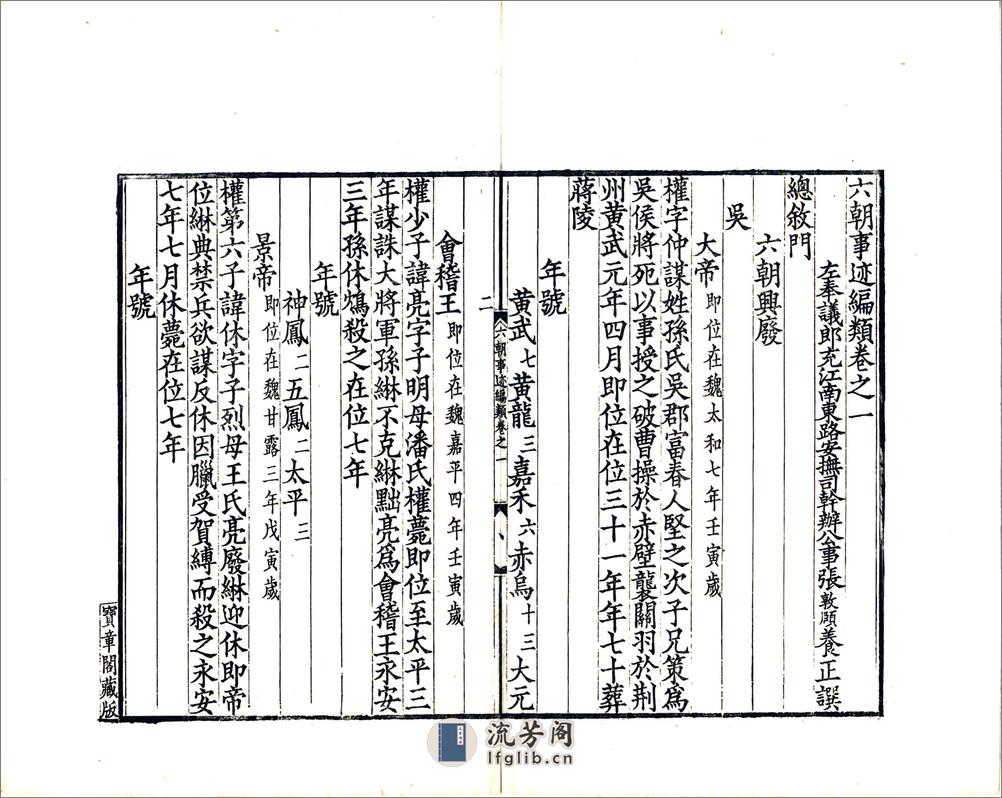 六朝事迹編類卷之一
左奉議郎充江南東路安撫司幹辦公事張敦頤養正譔
總敘門
六朝興廢
吳
大帝即位在魏太和七年壬寅歲
權字仲謀姓孫氏吳郡富春人堅之次子兄策爲
吳侯將死以事授之破曹操於赤壁襲關羽於荆
州黃武元年四月即位在位三十一年年七十葬
蔣陵
年號
黃武七黃龍三嘉禾六赤烏十三大元
二
六朝事迹編類卷之一
會稽王即位在魏嘉平四年壬寅歲
權少子諱亮字子明母潘氏權薨即位至太平三
年謀誅大將軍孫綝不克綝黜亮爲會稽王永安
三年孫休鴆殺之在位七年
年號
神鳳二五鳳二太平三
景帝即位在魏甘露三年戊寅歲
權第六子諱休字子烈母王氏亮廢綝迎休即帝
位綝典禁兵欲謀反休因臘受賀縛而殺之永安
七年七月休薨在位七年
年號
寶章閣藏版
流芳阁
lfglib.cn